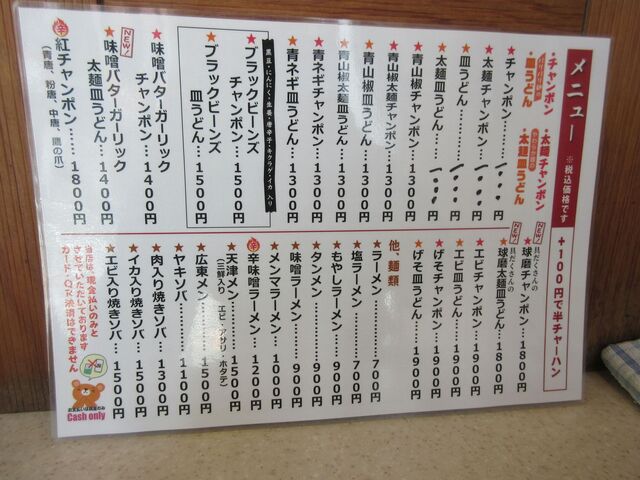 メニュー ※税込価格です
+100円で半チャーハン
・チャンポン ・太麺チャンポン
・皿うどん ・太麺皿うどん
★チャンポン………1000円
★太麺チャンポン…1000円
★皿うどん…………1000円
★太麺皿うどん……1000円
★青山椒チャンポン…1300円
★青山椒太麺チャンポン…1300円
★青山椒皿うどん…1300円
★青山椒太麺皿うどん…1300円
★青ネギチャンポン…1300円
★青ネギ皿うどん…1300円
黒豆・にんにく・生姜・唐辛子・キクラゲ・イカ 入り
★ブラックビーンズ
チャンポン…1500円
★ブラックビーンズ
皿うどん…1500円
NEW!
★味噌バターガーリック
チャンポン…1400円
★味噌バターガーリック
太麺皿うどん…1400円
辛 紅チャンポン……1800円
(青唐、粉唐、中唐、鷹の爪)
NEW! 具だくさんの
★球磨チャンポン…1800円
NEW! 具だくさんの
★球磨太麺皿うどん…1800円
★エビチャンポン…1900円
★エビ皿うどん…1900円
★げそチャンポン…1900円
★げそ皿うどん…1900円
他、麺類
★ラーメン…700円
★塩ラーメン…700円
★もやしラーメン…900円
★タンメン…900円
★味噌ラーメン…900円
★メンマラーメン…1000円
辛 辛味噌ラーメン…1200円
★天津メン…1500円
(三鮮入り エビ・アサリ・ホタテ)
★広東メン…1500円
★ヤキソバ…1100円
★肉入り焼きソバ…1300円
★イカ入り焼きソバ…1500円
★エビ入り焼きソバ…1500円
当店は、現金払いのみと
させていただいております
カード・QR決済はできません
お支払いは現金のみ
Cash only